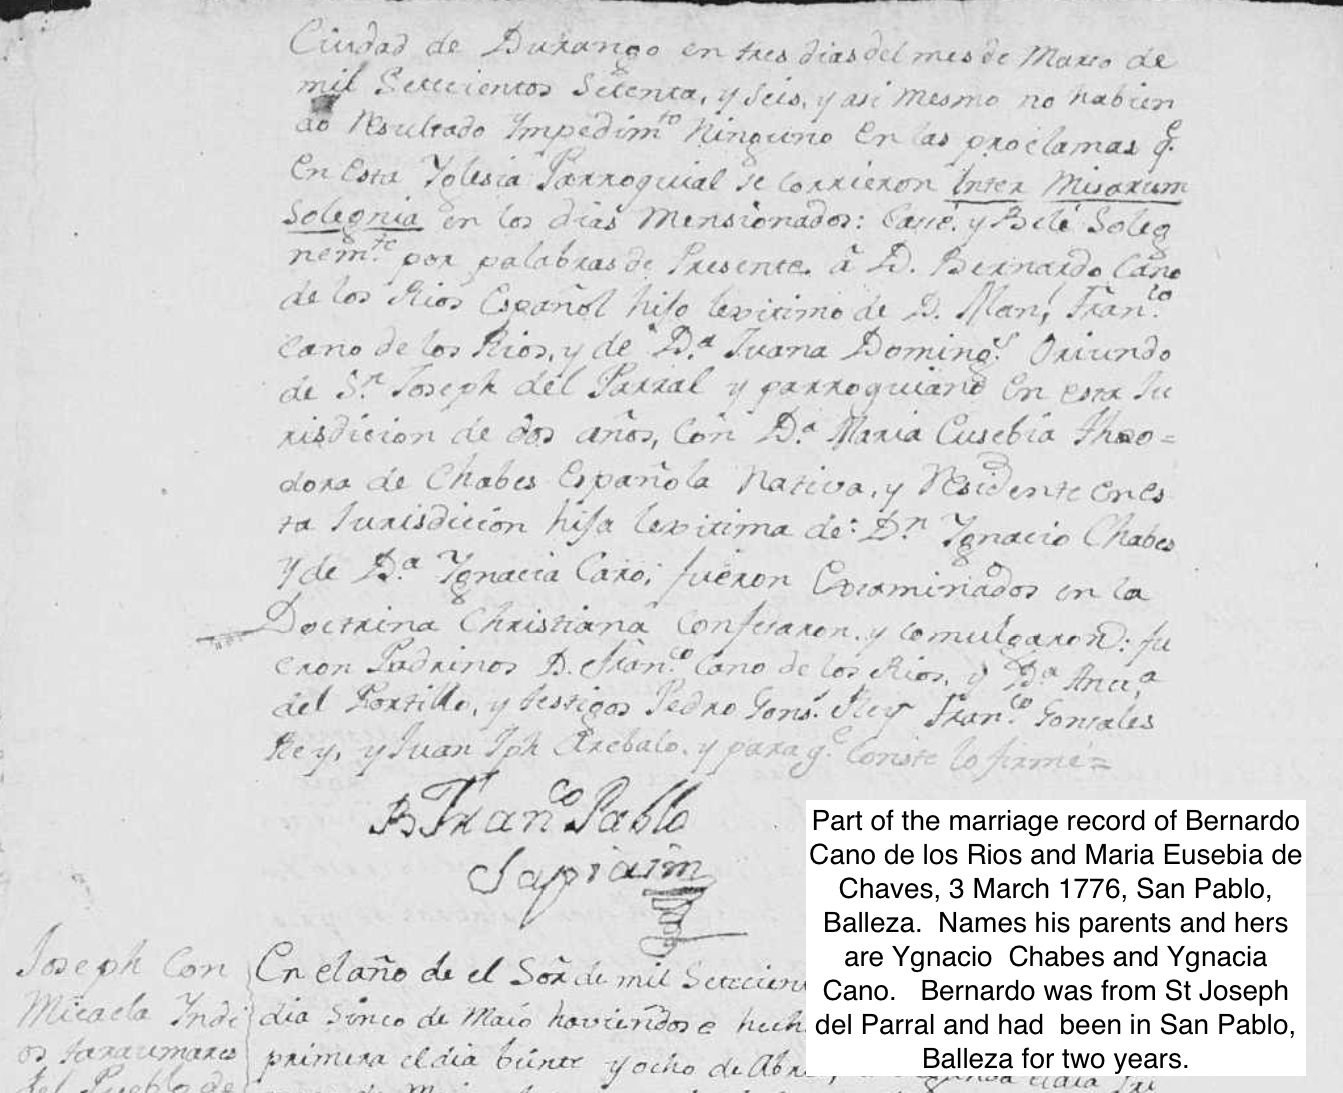 Ciudad de Durango en tres dias del mes de Marzo de
mil Setecientos Setenta, y seis, y asi mesmo no habien
do resultado Ympedim.to Ninguno en las proclamas q.e
en esta Yglesia Parroquial se corrieron Inter Misarum
Solegnia en los dias mensionados: Casé, y Belé Soleg
nem.te por palabras de Presente. â D. Bernardo Cano
de los Rios Español hijo lexitimo de D. Man.l Fran.co
Cano de los Rios, y de D.a Juana Doming.s Oriundo
de S.n Joseph del Parral y parroquiano en esta Ju
risdicion de dos años, con D.a Maria Eusebia theo=
dora de Chabes Española Nativa, y Residente en es
ta Jurisdicion hija lexitima de: D.n Ygnacio Chabes
y de D.a Ygnacia Caro; fueron Examinados en la
Doctrina Christiana Confesaron, y comulgaron: fu
eron Padrinos D. Fran.co Cano de los Rios, y D.a
del Portillo, y testigos Pedro Gons. Rey Fran.co Gonsales
Rey, y Juan Jph Arebalo. y para q.e Conste lo firmé=
B.r Fran.co Pablo
Sapiain
Joseph con
Micaela Indi
os taraumares
del Pueblo de
En el año de el Señ.r de mil Setecien
dia Sinco de Maio haviendose hech
primera el dia beinte y ocho de Abr
Part of the marriage record of Bernardo
Cano de los Rios and Maria Eusebia de
Chaves, 3 March 1776, San Pablo,
Balleza. Names his parents and hers
are Ygnacio Chabes and Ygnacia
Cano. Bernardo was from St Joseph
del Parral and had been in San Pablo,
Balleza for two years.